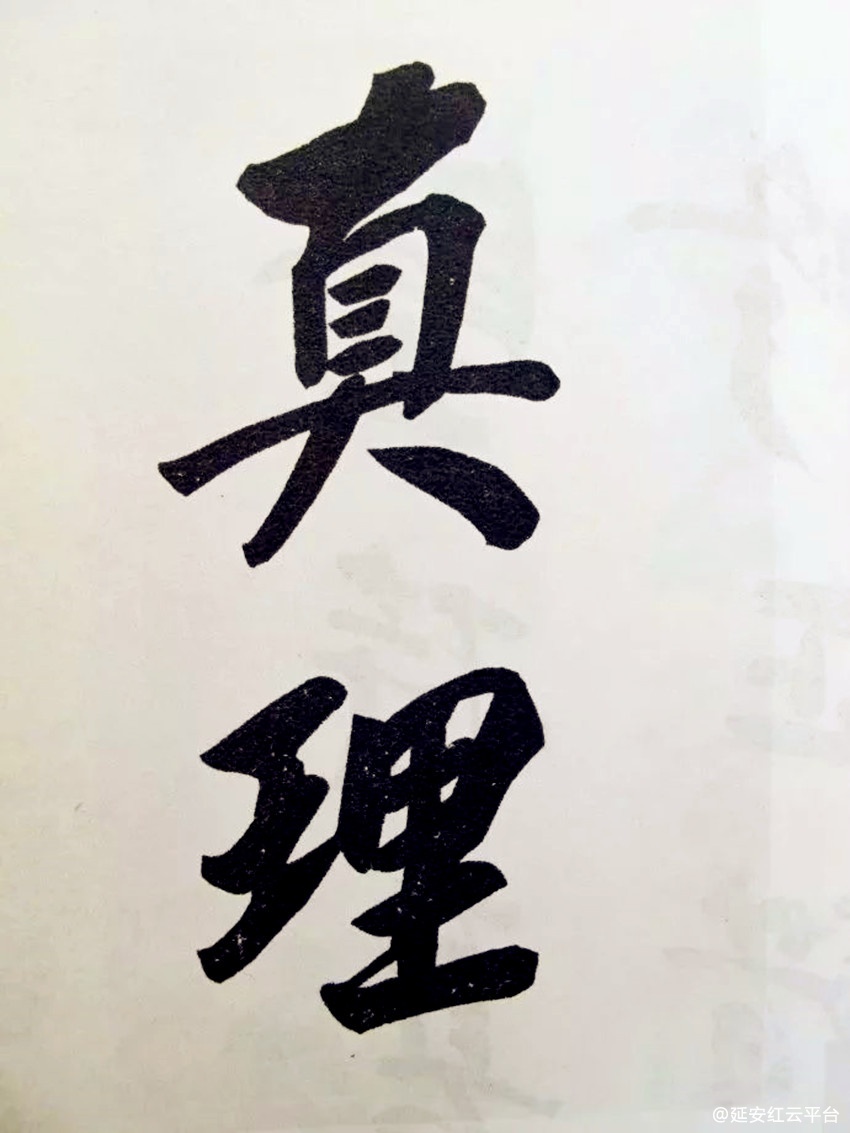 真理
@延安红云平台